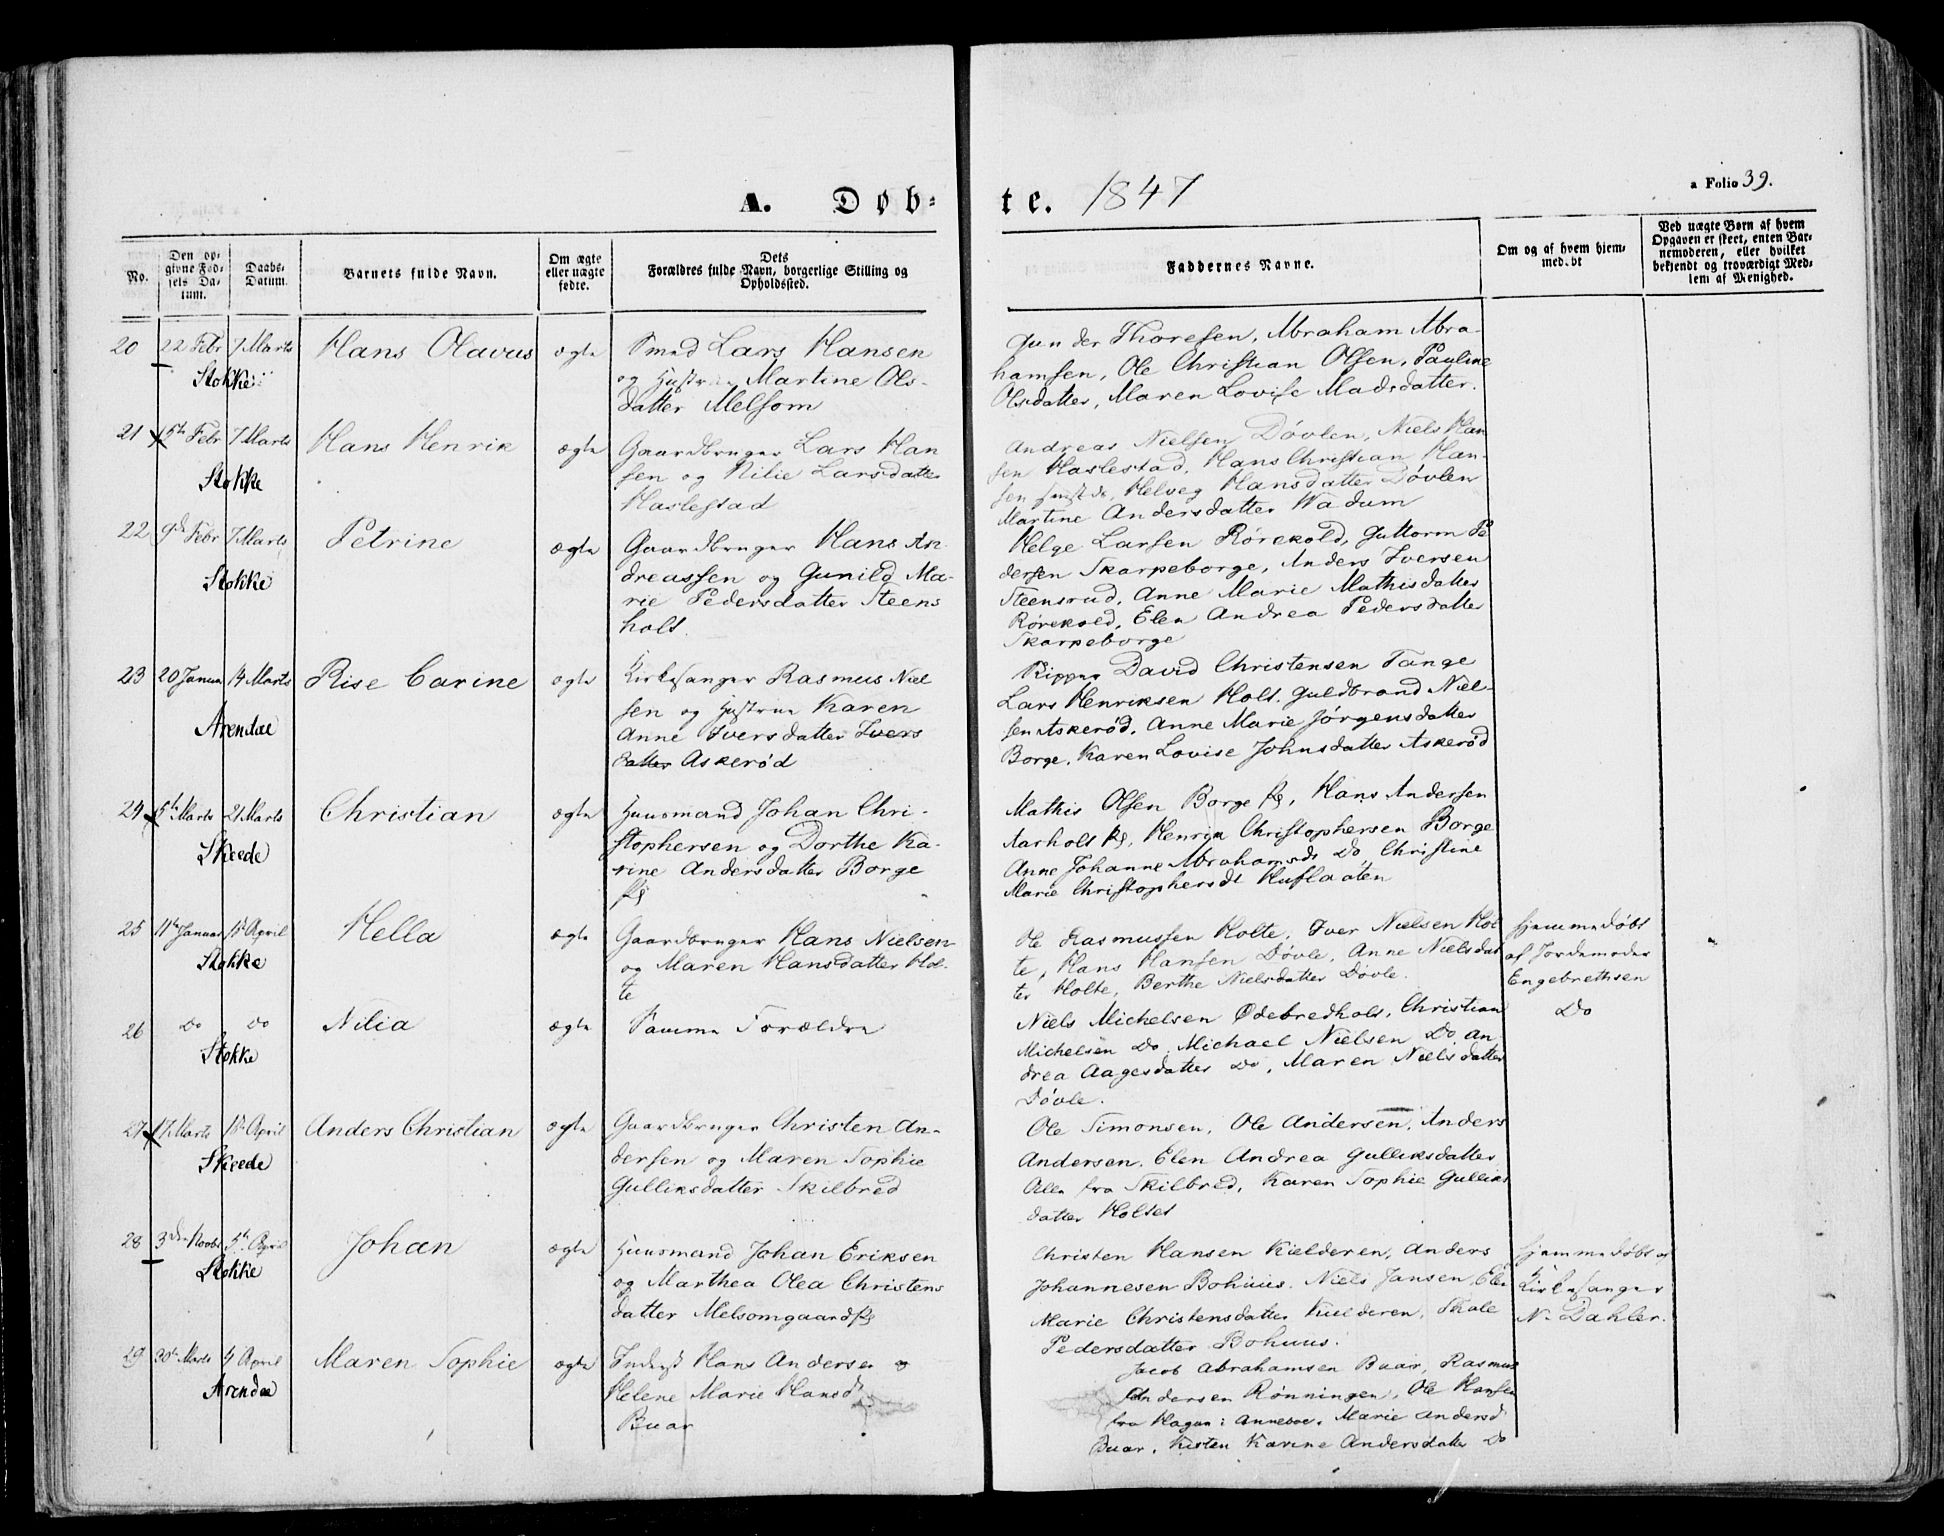 A. Døb-
te. 1847
a Folio 39.
No.
Den op-
givne Fød-
sels Da-
tum.
Daabs-
Datum.
Barnets fulde Navn.
Om ægte
eller uægte
fødte.
Dets
Forældres fulde Navn, borgerlige Stilling og
Opholdssted.
Faddernes Navne.
Om og af hvem hjem-
medøbt
Ved uægte Børn af hvem
Opgaven er skeet, enten Bar-
nemoderen, eller hvilket
bekjendt og troværdigt Med-
lem af Menighed.
20 22 Febr 7 Marts Hans Olavus ægte Smed Lars Hansen
Stokke og Hustrue Martine Ols-
datter Melsom
Gunder Thoresen, Abraham Abra-
hamsen, Ole Christian Olsen, Pauline
Olsdatter, Maren Lovise Madsdatter.
21 5te Febr 7 Marts Hans Henrik ægte Gaardbruger Lars Han
Stokke sen og Nilie Larsdatter
Haslestad
Andreas Nielsen Døvlen, Niels Han
sen Haslestad, Hans Christian Han-
sen, Helveg Hansdatter Døvlen
Martine Andersdatter Wadum
22 9de Febr 7 Marts Petrine ægte Gaardbruger Hans An
Stokke dreassen og Gunild Ma-
rie Pedersdatter Steens
holt.
Helge Larsen Rørekold, Guttorm Pe
dersen Skarpeborge, Anders Iversen
Steensrud, Anne Marie Mathisdatter
Rørekold, Elen Andrea Pedersdatter
Skarpeborge
23 20 Januar 14 Marts Rise Carine ægte Kirkesanger Rasmus Niel
Arendal sen og Hustrue Karen
Anne Iversdatter Ivers
datter Askerød
David Christensen Tange
Lars Henriksen Holt. Guldbrand Niel-
sen Askerød, Anne Marie Jørgensdatter
Borge, Karen Lovise Johnsdatter Askerød
24 5te Marts 21 Marts Christian ægte Huusmand Johan Chri-
Skeede stophersen og Dorthe Ka-
rine Andersdatter Borge
Mathis Olsen Borge, Hans Andersen
Aarholt, Henrik Christophersen Borge
Anne Johanne Abrahamsdt Do, Christine
Marie Christophersdt
25 11te Januar 1st April Hella ægte Gaardbruger Hans Nielsen
Stokke og Maren Hansdatter Hol-
te
Ole Rasmussen Holte, Iver Nielsen Hol
te, Hans Hansen Døvle, Anne Nielsdat
ter Holte, Berthe Nielsdatter Døvle.
Hjemmedøbt
af Jordemoder
Engebrethsen
26 Do Do Nilia ægte Samme Forældre
Stokke
Niels Michelsen Ødebredholt, Christian
Michelsen Do, Michael Nielsen Do, An
drea Aagesdatter Do, Maren Nielsdatter
Døvle.
Do
27 17 Marts 1st April Anders Christian ægte Gaardbruger Christen An-
Skeede dersen og Maren Sophie
Gulliksdatter Skilbred
Ole Simonsen, Ole Andersen, Anders
Andersen, Elen Andrea Gulliksdatter
Alle fra Skilbred, Karen Sophie Gulliks
datter Holtet
28 3die Novbr 5te April Johan ægte Huusmand Johan Eriksen
Stokke og Marthea Olea Christens
datter Melsomgaard
Christen Hansen Kielderen, Anders
Johannesen Bohuus. Niels Jansen, Elen
Marie Christensdatter Kielderen, Thale
Pedersdatter Bohuus.
Hjemmedøbt af
Kirkesanger
N. Dahler.
29 30te Marts 4 April Maren Sophie ægte Inderst Hans Andersen og
Arendal Helene Marie Hansd
Buar
Jacob Abrahamsen Buar, Rasmus
Andersen Rønningen, Ole Hansen
fra Hagen i Anneboe, Marie Andersd
Buar, Kisten Karine Andersdatter Do